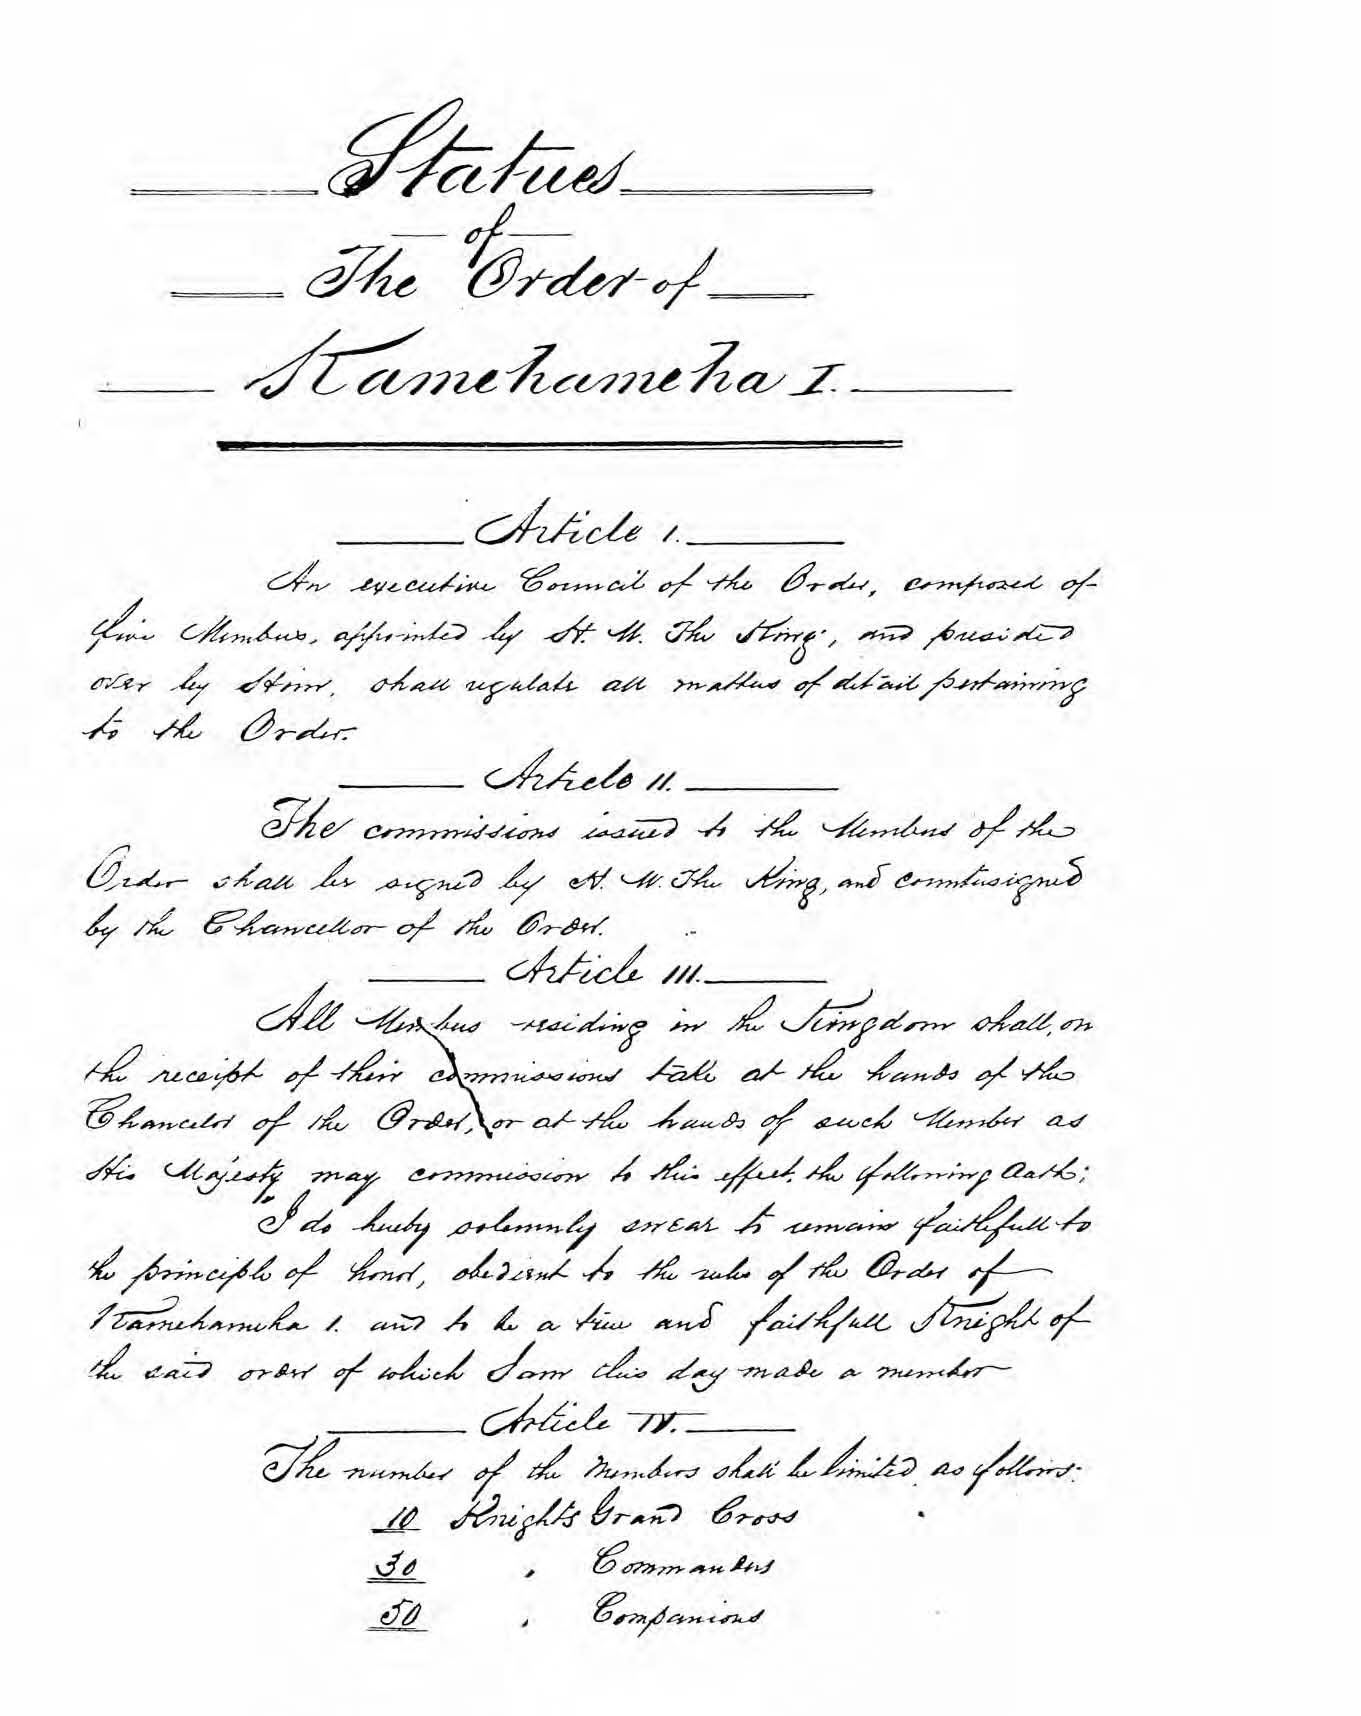 Statues
of
The Order of
Kamehameha I.
Article I.
An executive Council of the Order, composed of
five Members, appointed by H. M. The King, and presided
over by Him, shall regulate all matters of detail pertaining
to the Order.
Article II.
The commissions issued to the Members of the
Order shall be signed by H. M. The King, and countersigned
by the Chancellor of the Order.
Article III.
All Members residing in the Kingdom shall, on
the receipt of their commissions take at the hands of the
Chancelor of the Order, or at the hands of such Member as
His Majesty may commission to this effect, the following Oath;
"I do hereby solemnly swear to remain faithfull to
the principle of honor, obedient to the rules of the Order of
Kamehameha I. and to be a true and faithfull Knight of
the said order of which I am this day made a member
Article IV.
The number of the Members shall be limited as follows:
10 Knights Grand Cross
30 " Commanders
50 " Companions